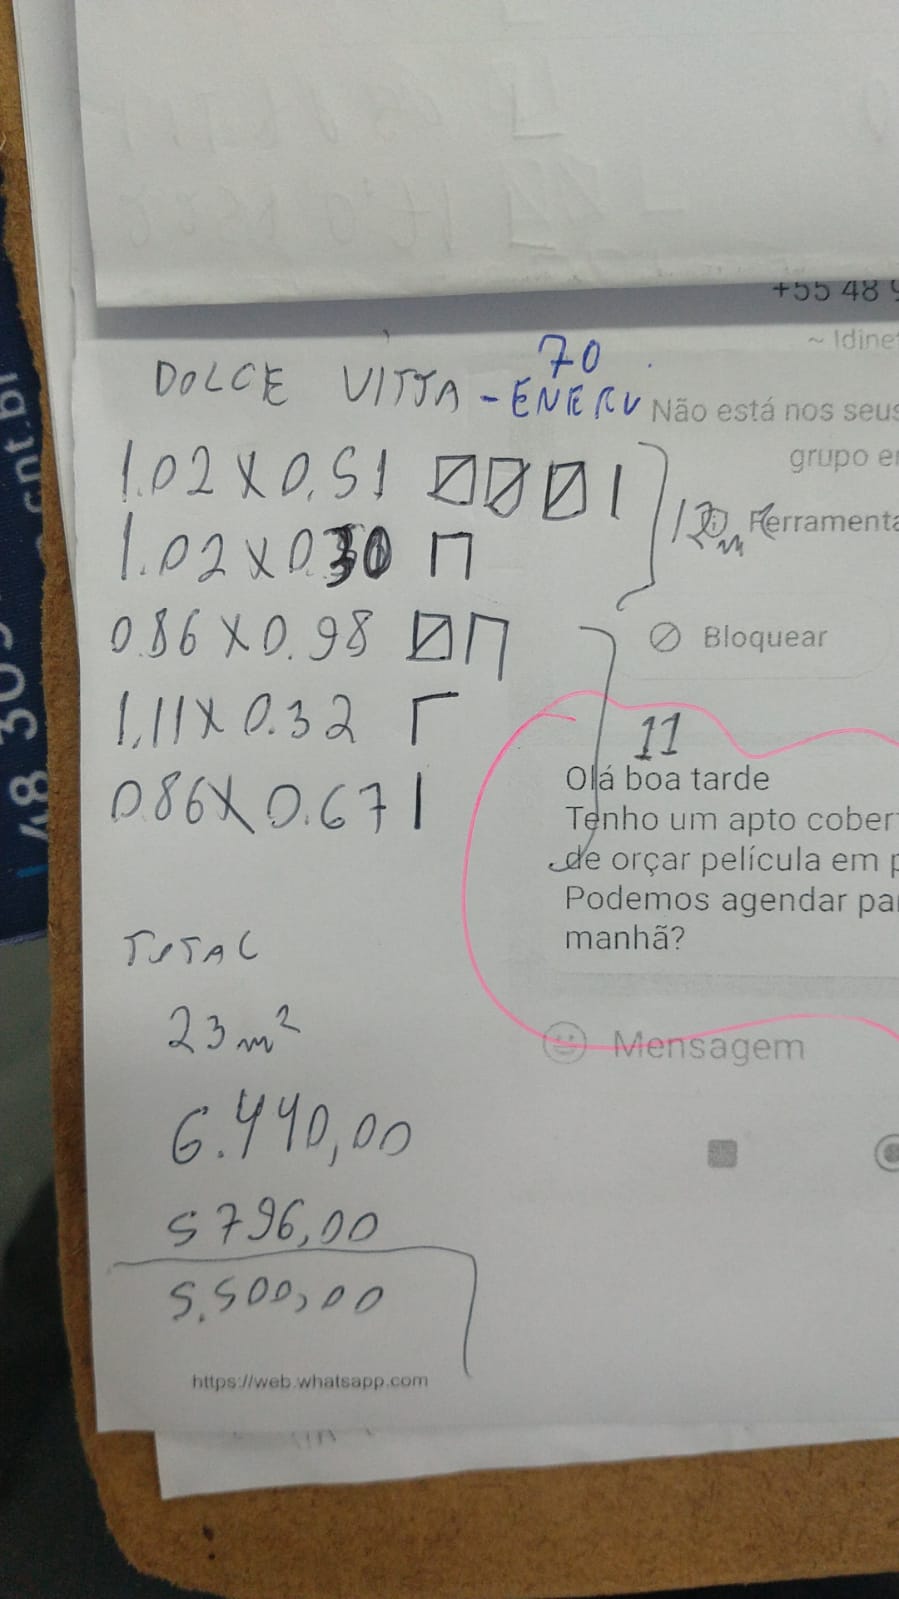 +55 48 9
~ Idinet
70
DOLCE VITTA - ENERV
Não está nos seus
grupo em
1.02 X 0.51
12m
Ferramenta
1.02 X 0.30
0.86 X 0.98
Bloquear
1.11 X 0.32
11
0.86 X 0.67
Olá boa tarde
Tenho um apto cober
de orçar película em p
Podemos agendar pa
manhã?
TOTAL
23m²
Mensagem
6.440,00
5796,00
5.500,00
https://web.whatsapp.com